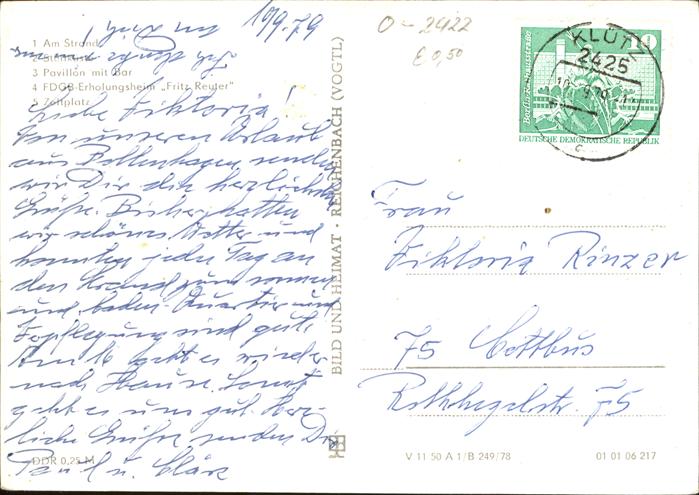 10/9.79
0-2422
€ 0,50
1 Am Strand
3 Pavillon mit Bar
4 FDGB-Erholungsheim „Fritz Reuter"
5 Zeltplatz
Liebe Viktoria!
Von unseren Urlaub
aus Boltenhagen senden
wir Dir die herzlichsten
Grüße. Bisher hatten
wir schönes Wetter und
konnten jeden Tag an
den Strand zum sonnen
und baden. Quartier und
Verpflegung sind gut.
Am 16 geht es wieder
nach Hause. Sonst
geht es uns gut. Herz-
liche Grüße senden Dir
Paul u. Cläre
DDR 0,25 M
BILD UND HEIMAT · REICHENBACH (VOGTL)
KLÜTZ
2425
10
Berlin, Rathausstraße
DEUTSCHE DEMOKRATISCHE REPUBLIK
Frau
Viktoria Rinzer
75 Cottbus
75
V 11 50 A 1/B 249/78
01 01 06 217